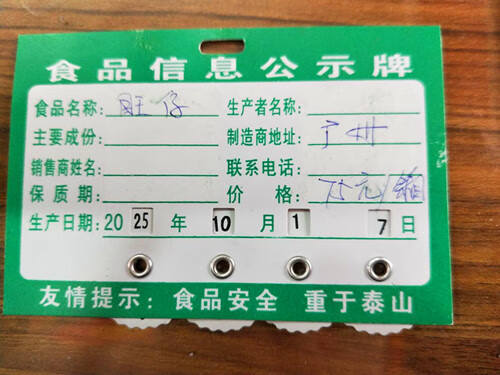 食品信息公示牌
食品名称: 旺仔 生产者名称:
主要成份: 制造商地址: 广州
销售商姓名: 联系电话:
保质期: 价格: 75元/箱
生产日期: 2025年10月17日
友情提示: 食品安全 重于泰山